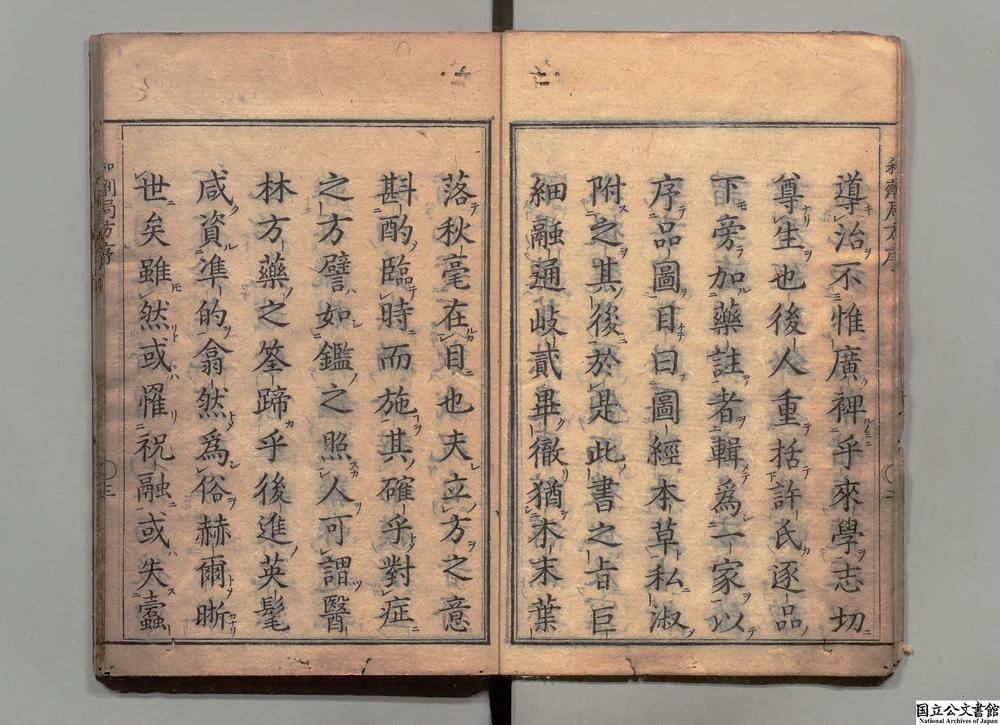 導治不惟廣裨乎來學志切
尊生也後人重括許氏逐品
下旁加藥註者輯爲一家以
序品圖目曰圖經本草私淑
附之其後於是此書之旨巨
細融通岐貳畢徹猶木末葉
落秋毫在目也夫立方之意
斟酌臨時而施其確乎對症
之方譬如鑑之照人可謂醫
林方藥之筌蹄乎後進英髦
咸資凖的翕然爲俗赫爾晰
世矣雖然或罹祝融或失蠹
和劑局方序
和劑局方序
国立公文書館
National Archives of Japan